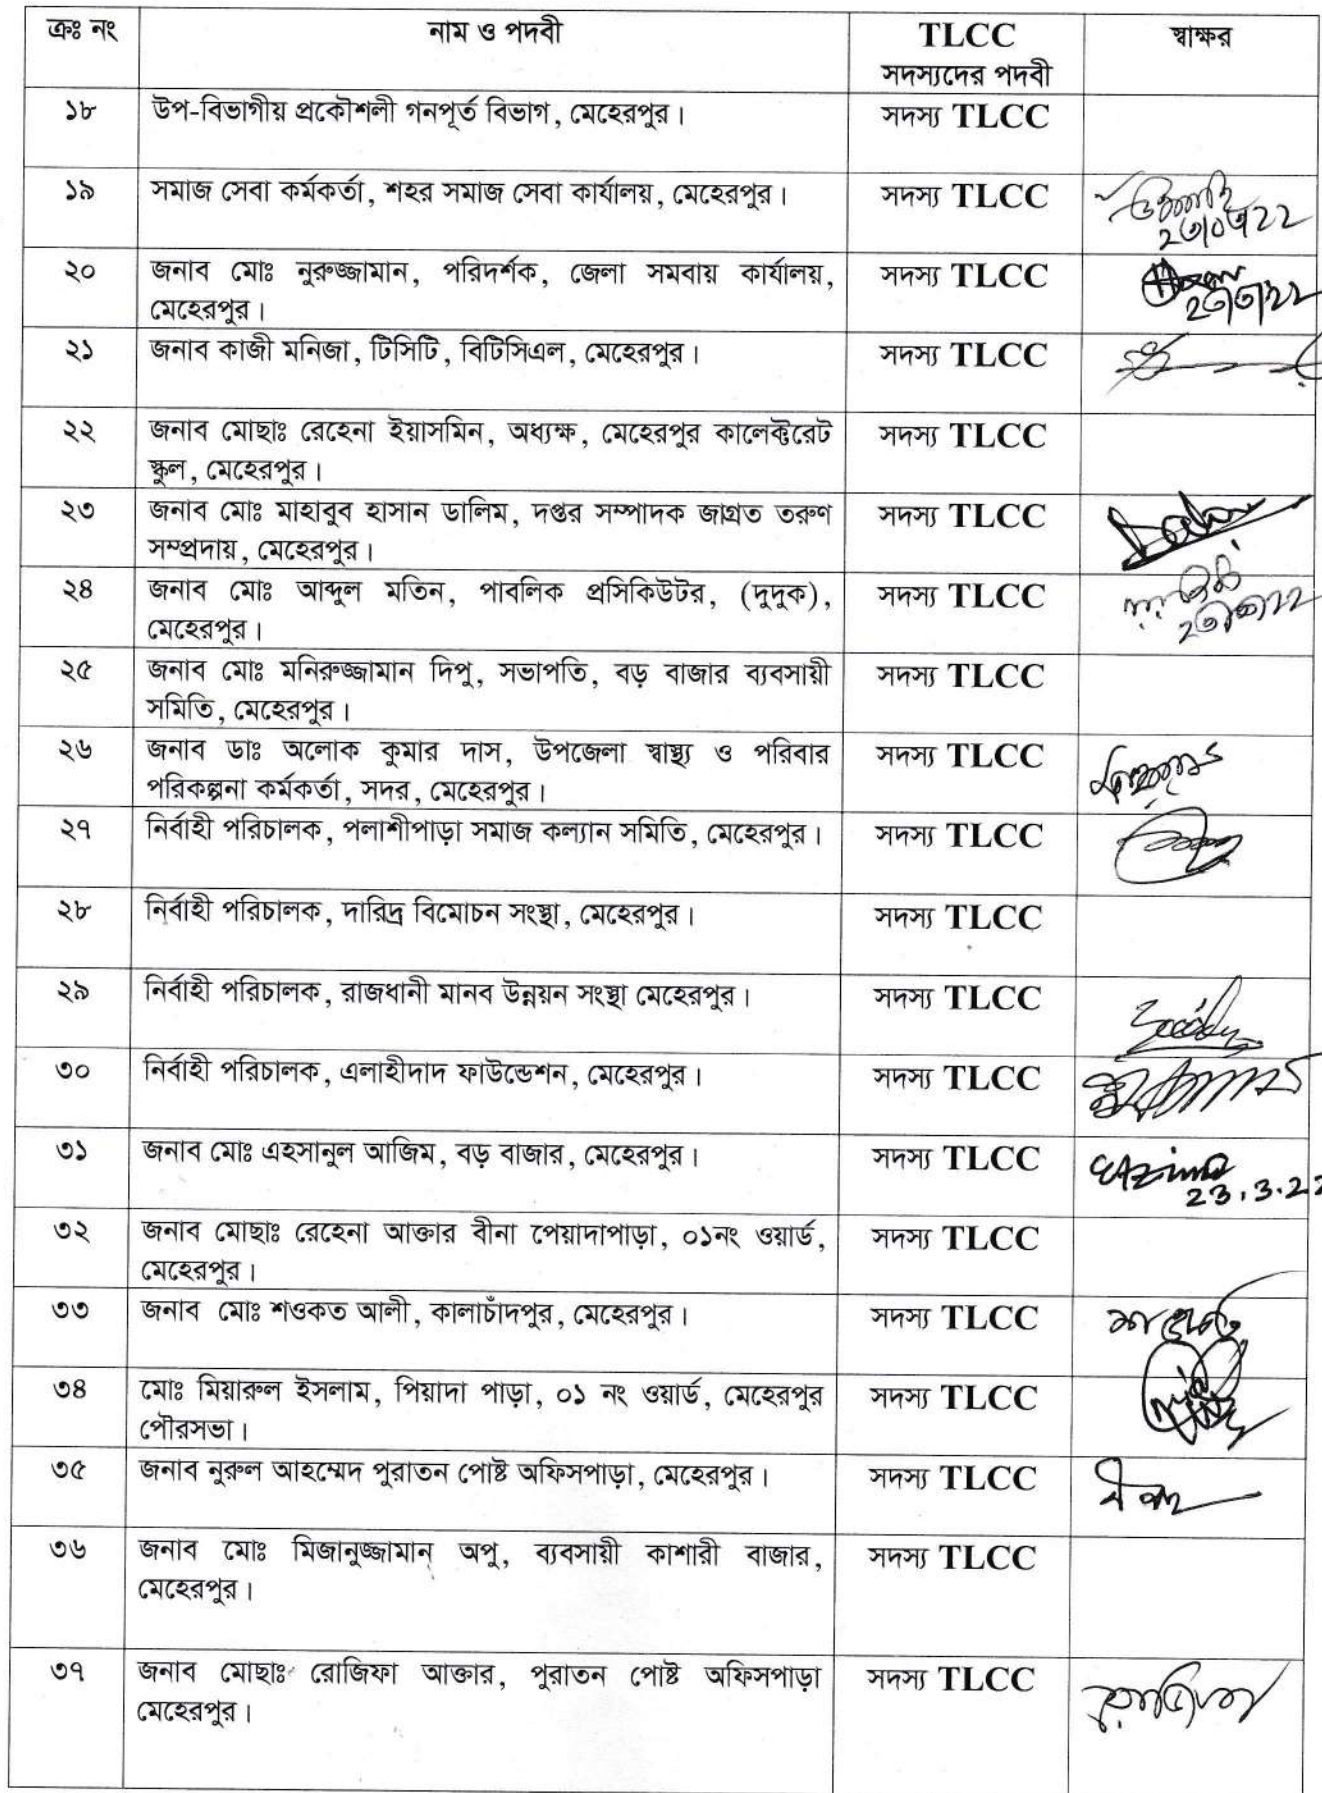 ক্রঃ নং নাম ও পদবী TLCC স্বাক্ষর
সদস্যদের পদবী
১৮ উপ-বিভাগীয় প্রকৌশলী গনপূর্ত বিভাগ, মেহেরপুর। সদস্য TLCC
১৯ সমাজ সেবা কর্মকর্তা, শহর সমাজ সেবা কার্যালয়, মেহেরপুর। সদস্য TLCC
২৩/০৩/২২
২০ জনাব মোঃ নুরুজ্জামান, পরিদর্শক, জেলা সমবায় কার্যালয়, সদস্য TLCC
মেহেরপুর। ২৩/৩/২২
২১ জনাব কাজী মনিজা, টিসিটি, বিটিসিএল, মেহেরপুর। সদস্য TLCC
২২ জনাব মোছাঃ রেহেনা ইয়াসমিন, অধ্যক্ষ, মেহেরপুর কালেক্টরেট সদস্য TLCC
স্কুল, মেহেরপুর।
২৩ জনাব মোঃ মাহাবুব হাসান ডালিম, দপ্তর সম্পাদক জাগ্রত তরুণ সদস্য TLCC
সম্প্রদায়, মেহেরপুর।
২৪ জনাব মোঃ আব্দুল মতিন, পাবলিক প্রসিকিউটর, (দুদুক), সদস্য TLCC
মেহেরপুর।
২৫ জনাব মোঃ মনিরুজ্জামান দিপু, সভাপতি, বড় বাজার ব্যবসায়ী সদস্য TLCC
সমিতি, মেহেরপুর।
২৬ জনাব ডাঃ অলোক কুমার দাস, উপজেলা স্বাস্থ্য ও পরিবার সদস্য TLCC
পরিকল্পনা কর্মকর্তা, সদর, মেহেরপুর।
২৭ নির্বাহী পরিচালক, পলাশীপাড়া সমাজ কল্যান সমিতি, মেহেরপুর। সদস্য TLCC
২৮ নির্বাহী পরিচালক, দারিদ্র বিমোচন সংস্থা, মেহেরপুর। সদস্য TLCC
২৯ নির্বাহী পরিচালক, রাজধানী মানব উন্নয়ন সংস্থা মেহেরপুর। সদস্য TLCC
৩০ নির্বাহী পরিচালক, এলাহীদাদ ফাউন্ডেশন, মেহেরপুর। সদস্য TLCC
৩১ জনাব মোঃ এহসানুল আজিম, বড় বাজার, মেহেরপুর। সদস্য TLCC EAzima
23.3.22
৩২ জনাব মোছাঃ রেহেনা আক্তার বীনা পেয়াদাপাড়া, ০১নং ওয়ার্ড, সদস্য TLCC
মেহেরপুর।
৩৩ জনাব মোঃ শওকত আলী, কালাচাঁদপুর, মেহেরপুর। সদস্য TLCC
৩৪ মোঃ মিয়ারুল ইসলাম, পিয়াদা পাড়া, ০১ নং ওয়ার্ড, মেহেরপুর সদস্য TLCC
পৌরসভা।
৩৫ জনাব নুরুল আহম্মেদ পুরাতন পোষ্ট অফিসপাড়া, মেহেরপুর। সদস্য TLCC
৩৬ জনাব মোঃ মিজানুজ্জামান্ অপু, ব্যবসায়ী কাশারী বাজার, সদস্য TLCC
মেহেরপুর।
৩৭ জনাব মোছাঃ রোজিফা আক্তার, পুরাতন পোষ্ট অফিসপাড়া সদস্য TLCC রোজিফা
মেহেরপুর।